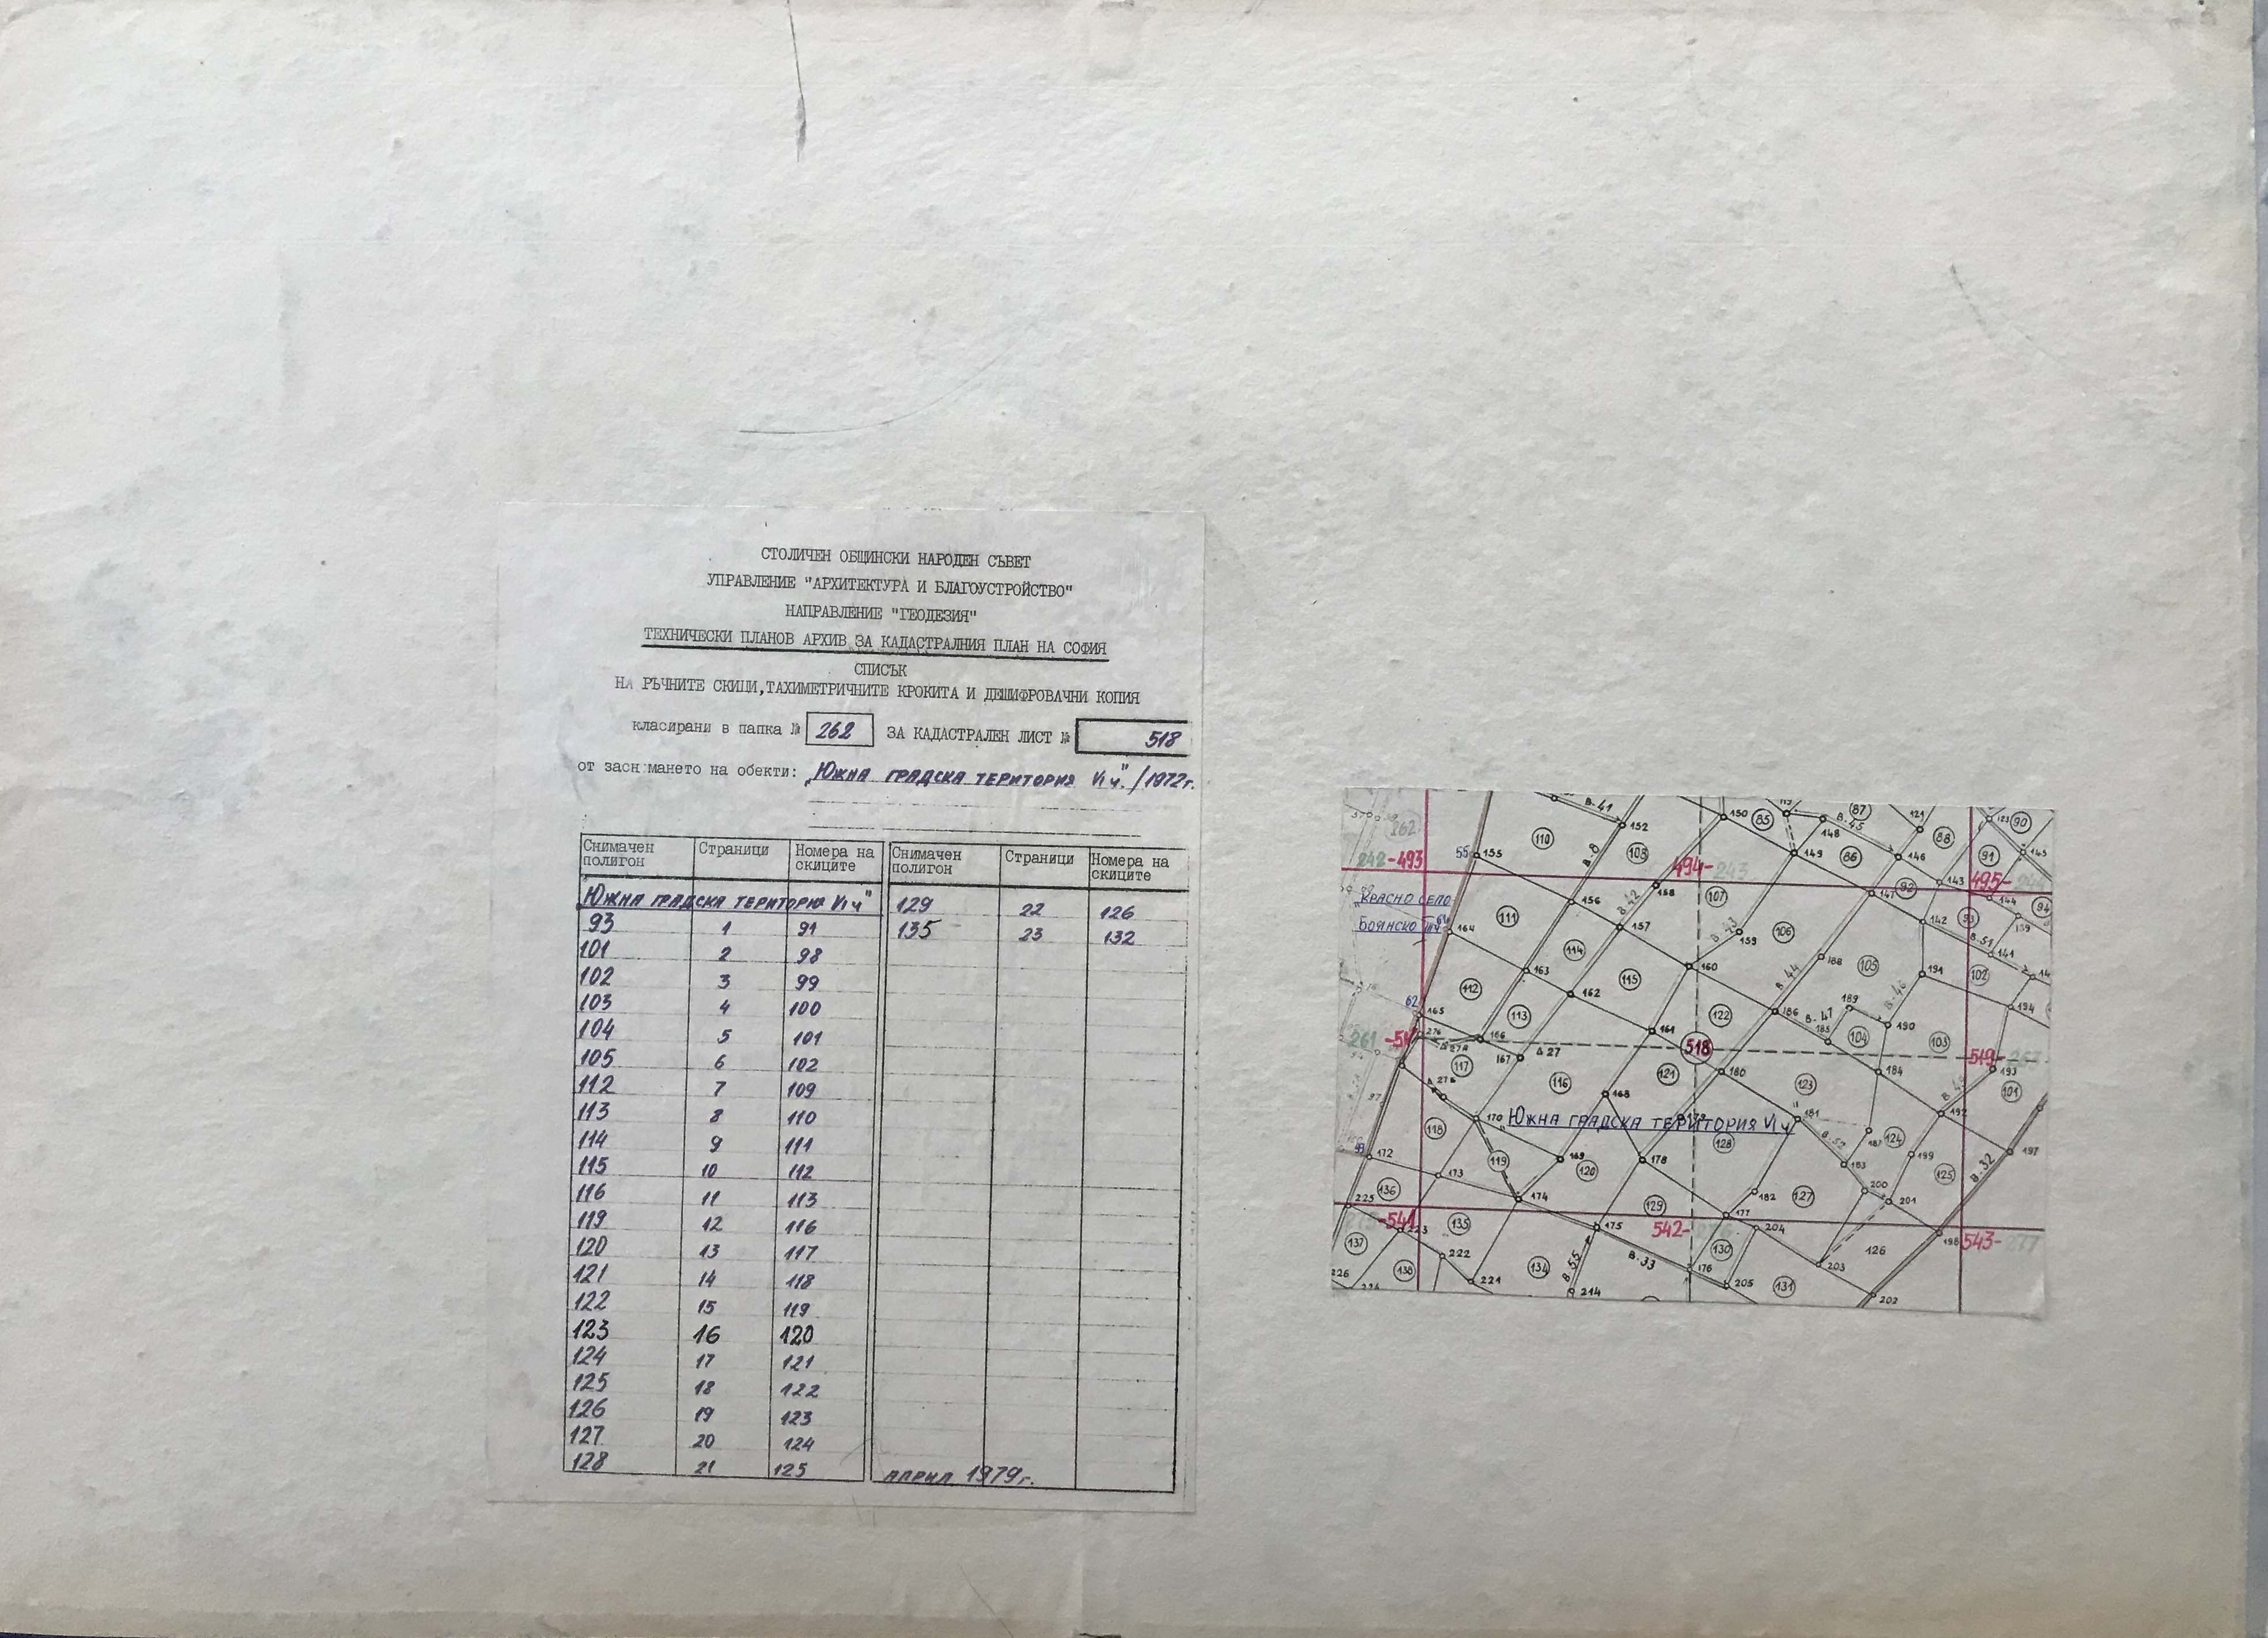 СТОЛИЧЕН ОБЩИНСКИ НАРОДЕН СЪВЕТ
УПРАВЛЕНИЕ "АРХИТЕКТУРА И БЛАГОУСТРОЙСТВО"
НАПРАВЛЕНИЕ "ГЕОДЕЗИЯ"
ТЕХНИЧЕСКИ ПЛАНОВ АРХИВ ЗА КАДАСТРАЛНИЯ ПЛАН НА СОФИЯ
СПИСЪК
НА РЪЧНИТЕ СКИЦИ, ТАХИМЕТРИЧНИТЕ КРОКИТА И ДЕШИФРОВАЧНИ КОПИЯ
класирани в папка № 262 ЗА КАДАСТРАЛЕН ЛИСТ № 518
от заснемането на обекти: „Южна градска територия VI ч." / 1972 г.
Снимачен полигон Страници Номера на скиците Снимачен полигон Страници Номера на скиците
Южна градска територия VI ч" 129 22 126
93 1 91 135 23 132
101 2 98
102 3 99
103 4 100
104 5 101
105 6 102
112 7 109
113 8 110
114 9 111
115 10 112
116 11 113
119 12 116
120 13 117
121 14 118
122 15 119
123 16 120
124 17 121
125 18 122
126 19 123
127 20 124
128 21 125
април 1979 г.
В-41 150 85 87 121 90
262 110 152 148 В-45 88
242-493 55 155 В-8 103 494-243 149 86 146 91 145
158 107 147 92 143 495-
"Красно село 156 В-42 142 93 144 94
Боянско 164 111 157 В-43 159 106 В-51 139
114 160 188 105 141
163 В-44 191 102
112 162 115 189 В-46 194
62 165 113 122 186 В-47 190
276 166 161 185 104 103
261 167 Δ 27 518 519-
117 116 121 180 184 193
123 101
168 В-32
170 "Южна градска територия VI ч" 181 192
118 128 В-52 187 124 197
172 119 169 120 178 183 199 125
173
136 174 182 127 200 201
225 129
-541 223 135 175 542- 177 204 198 543-
137 222 В-33 130 126
226 138 221 134 В-55 176 205 131 203
214 202